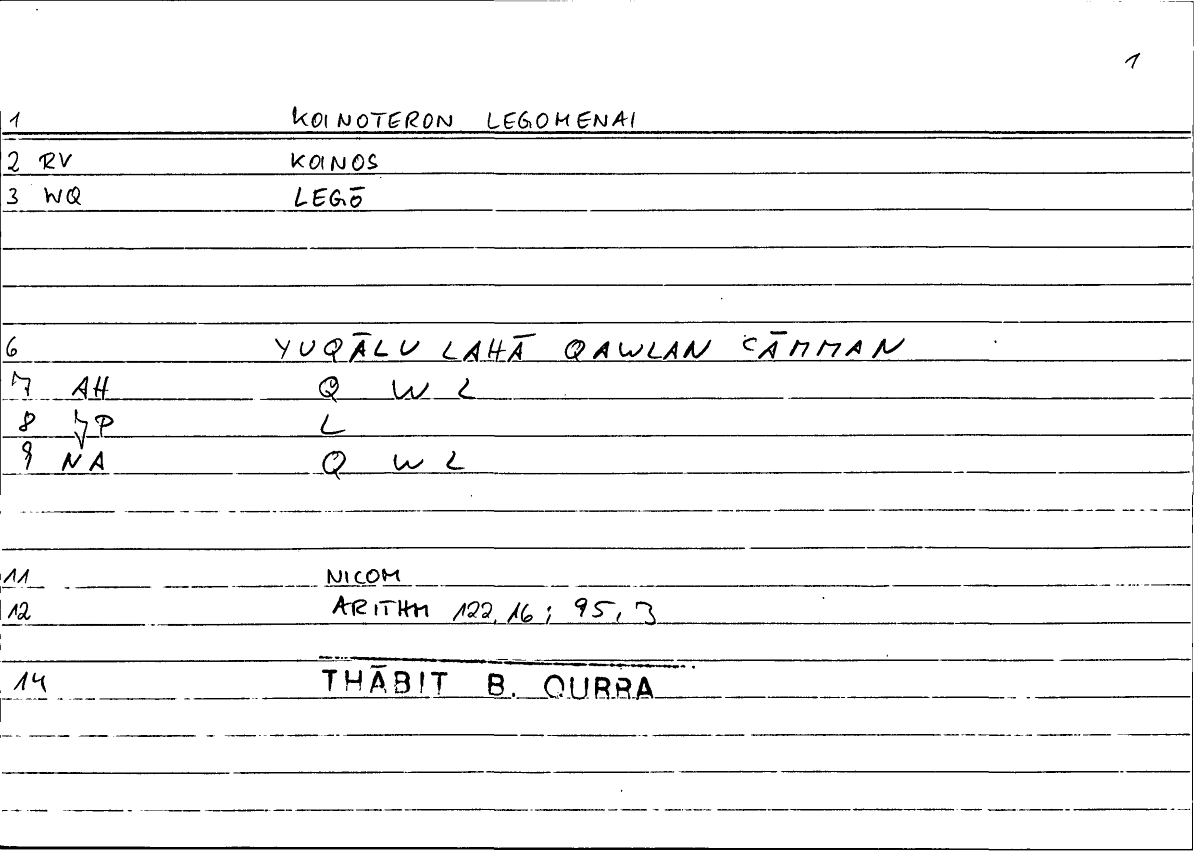 1
1 KOINOTERON LEGOMENAI
2 RV KOINOS
3 WQ LEGŌ
6 YUQĀLU LAHĀ QAWLAN ʿĀMMAN
7 AH Q W L
8 P L
9 NA Q W L
11 NICOM
12 ARITHM 122,16; 95,3
14 THĀBIT B. QURRA